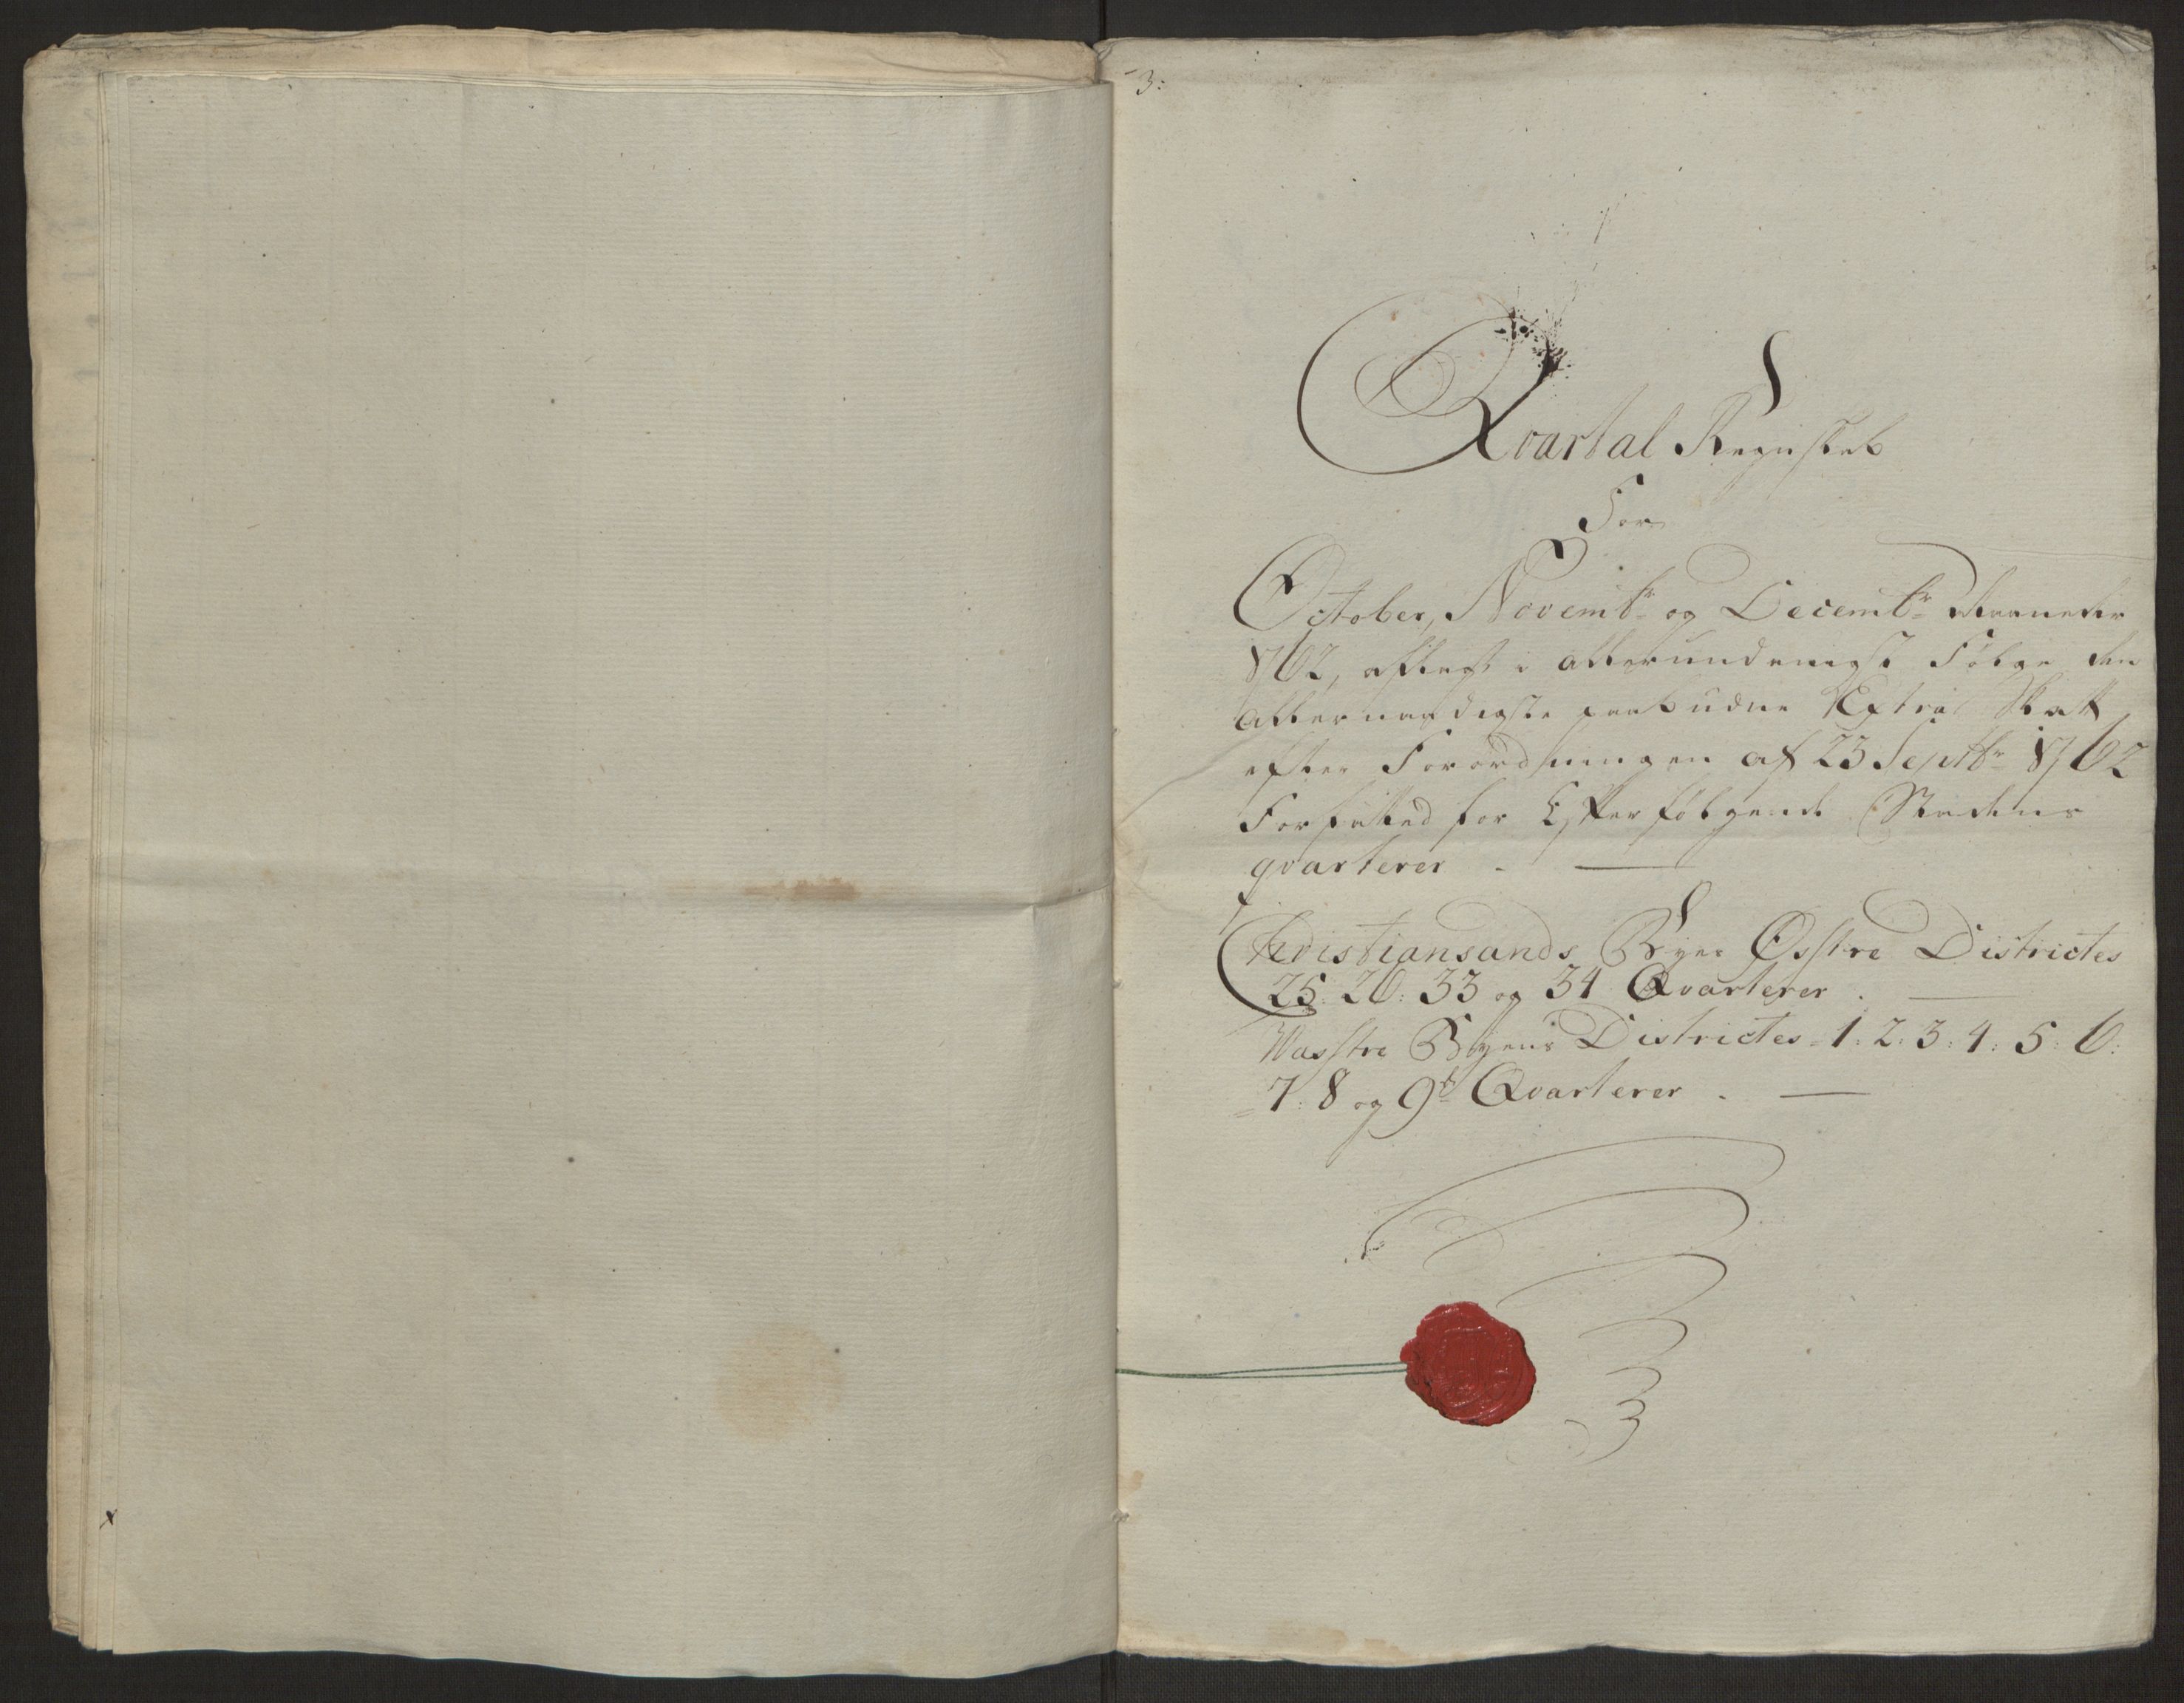 3:
Qvartal Register
For
October, Novembr og Decembr Maaneder
1762, aflagt i allerunderdanigst Følge den
allernaadigste paabudne Extra Skatt
efter Forordningen af 23 Septbr 1762
Forfatted for Efterfølgende Stadens
qvarterer . —
Christiansands Byes Østre Districtes
25: 26: 33 og 34 Qvarterer . —
Wæstre Byens Districtes 1: 2: 3: 4: 5: 6:
7: 8 og 9de Qvarterer . —